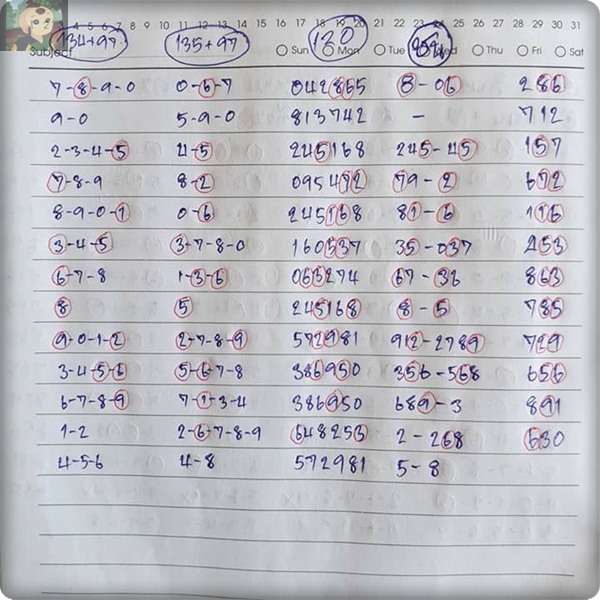 3 4 5 6 7 8 9 10 11 12 13 14 15 16 17 18 19 20 21 22 23 24 25 26 27 28 29 30 31
Subject 134+97 135+97 Sun 120 Mon Tue Wed Thu Fri Sat
7-8-9-0 0-6-7 042865 8-06 286
9-0 5-9-0 813742 - 712
2-3-4-5 4-5 245168 245-45 157
7-8-9 8-2 095472 79-2 672
8-9-0-1 0-6 245168 81-6 116
3-4-5 3-7-8-0 160537 35-037 253
6-7-8 1-3-6 053274 67-36 863
8 5 245168 8-5 785
9-0-1-2 2-7-8-9 572981 912-2789 729
3-4-5-6 5-6-7-8 386950 356-568 656
6-7-8-9 7-1-3-4 386950 689-3 891
1-2 2-6-7-8-9 648253 2-268 630
4-5-6 4-8 572981 5-8